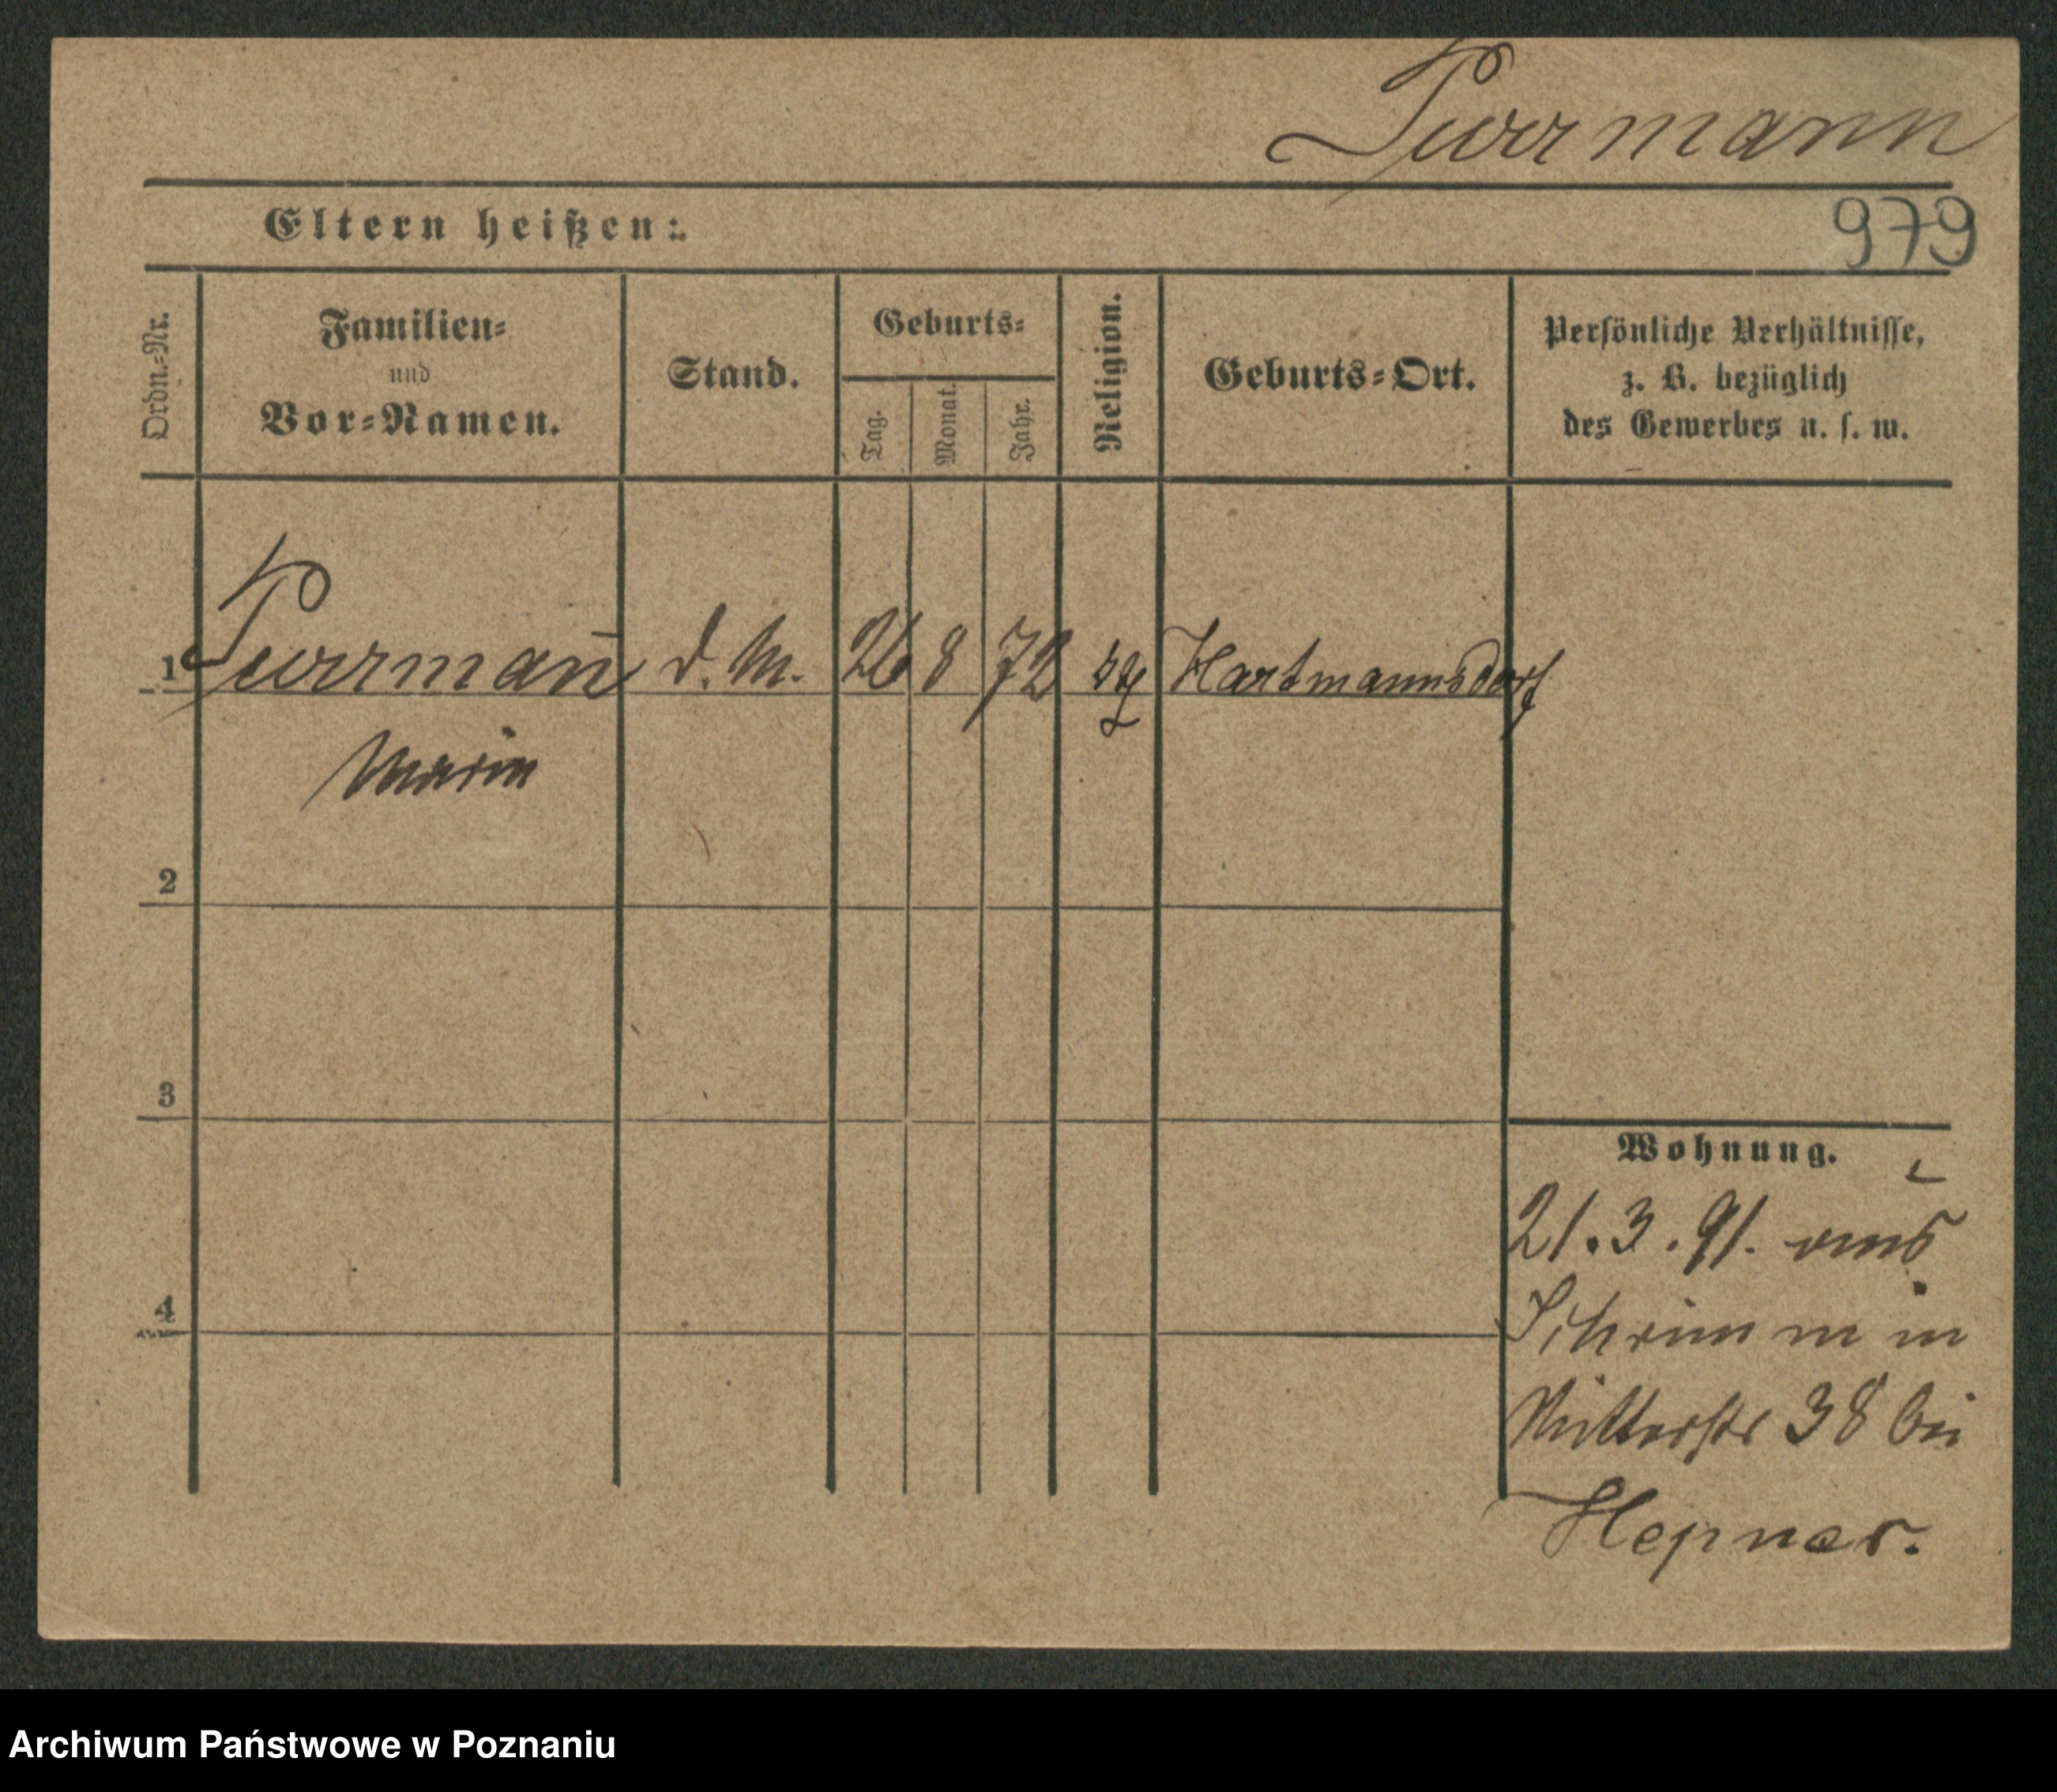 Purrmann
979
Eltern heißen:
Ordn.=Nr.
Familien=
und
Vor=Namen.
Stand.
Geburts=
Tag.
Monat.
Jahr.
Religion.
Geburts=Ort.
Persönliche Verhältnisse,
z. B. bezüglich
des Gewerbes u. s. w.
1 Purrman̄ d. M. 26 8 72 Hartmannsdorf
Marie
2
3
4
Wohnung.
21.3.91. aus
Schrimm in
Ritterstr 38 bei
Hepner.
Archiwum Państwowe w Poznaniu